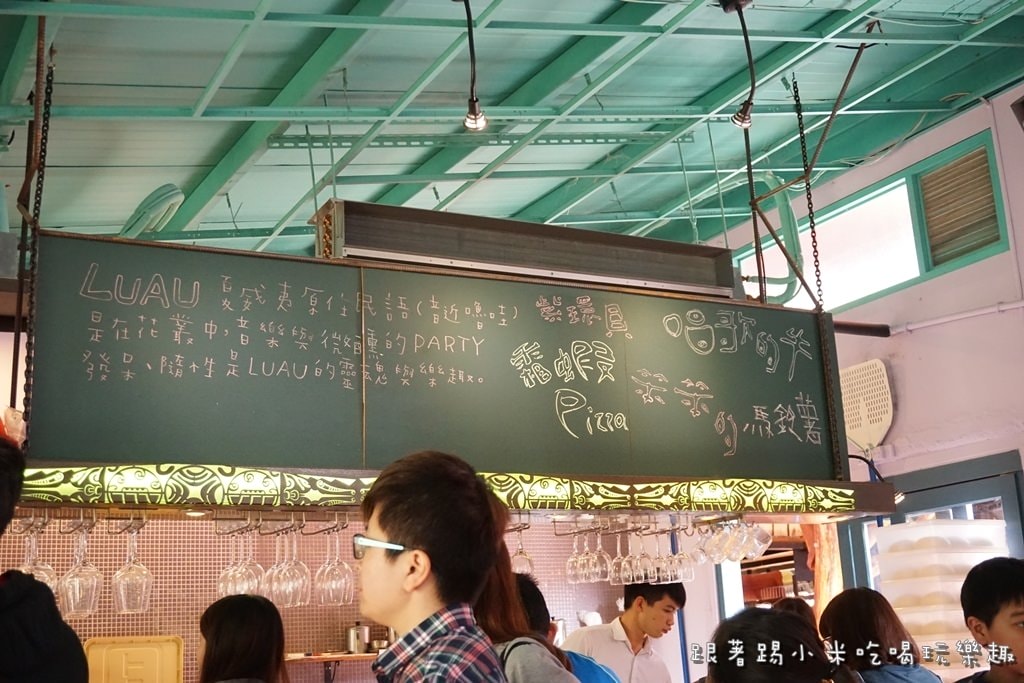 LUAU 夏威夷原住民語(音近嚕哇)
是在花叢中,音樂與微醺的PARTY
發呆、隨性是LUAU的靈魂與樂趣。
紫環員
霸蝦
Pizza
唱歌的羊
爺爺的馬鈴薯
跟著踢小米吃喝玩樂趣